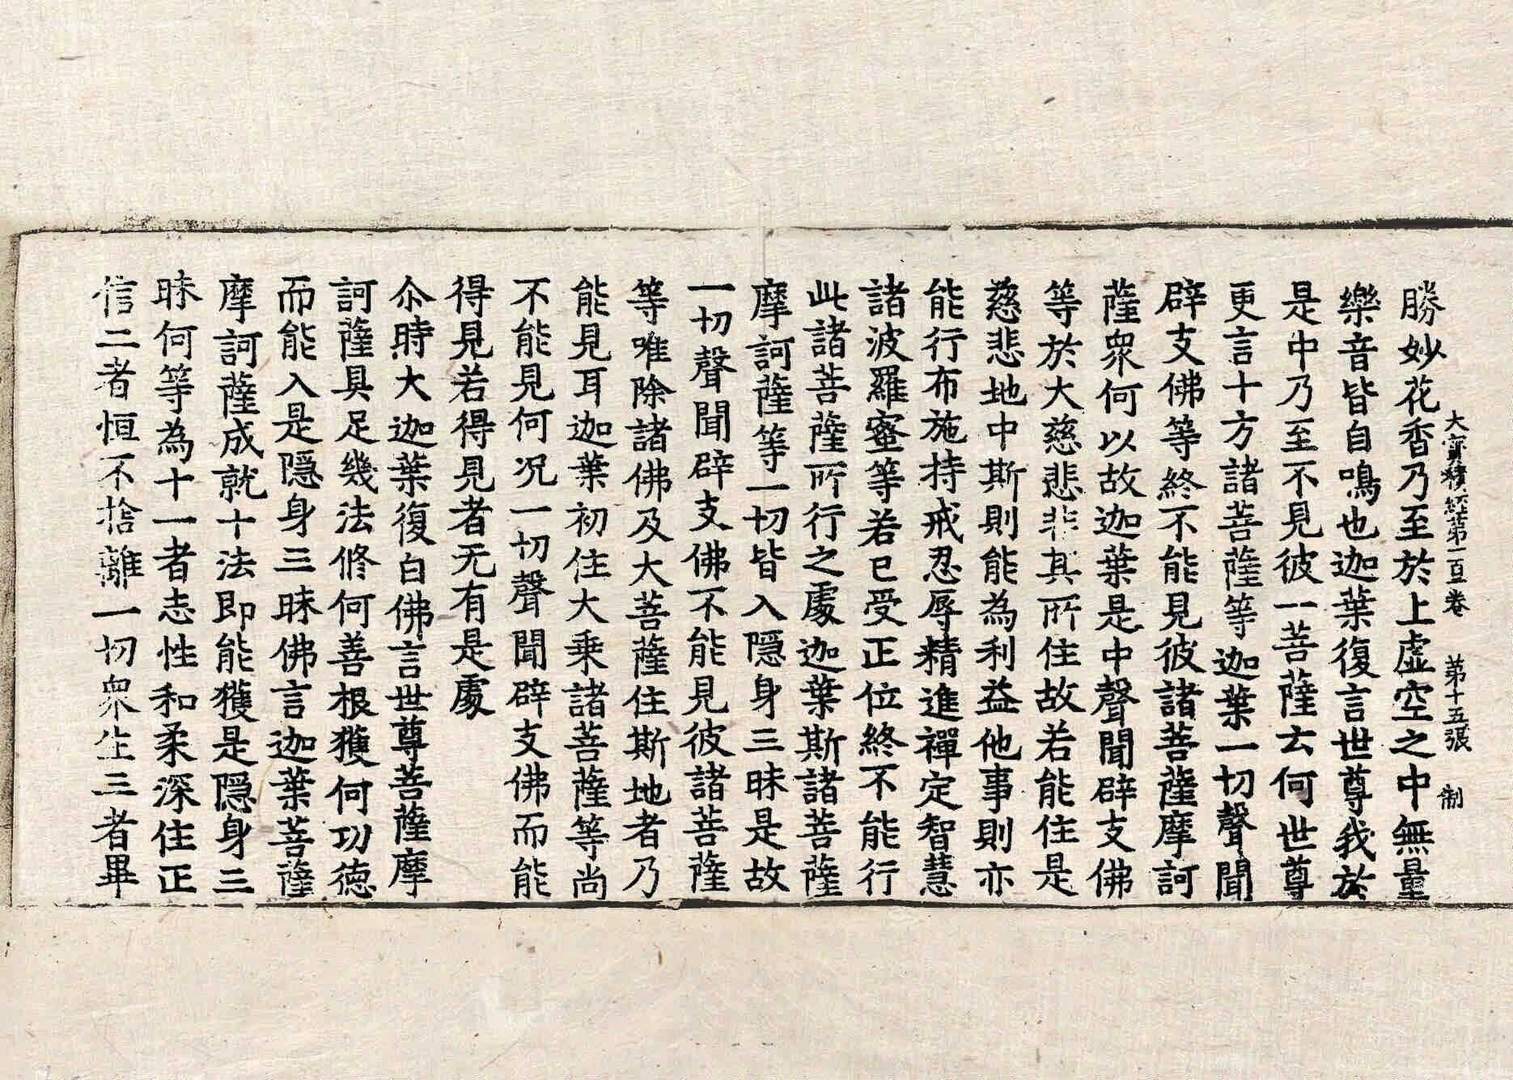 大寶積經第一百卷 第十五張 制
勝妙花香乃至於上虛空之中無量
樂音皆自鳴也迦葉復言世尊我於
是中乃至不見彼一菩薩去何世尊
更言十方諸菩薩等迦葉一切聲聞
辟支佛等終不能見彼諸菩薩摩訶
薩眾何以故迦葉是中聲聞辟支佛
等於大慈悲非其所住故若能住是
慈悲地中斯則能為利益他事則亦
能行布施持戒忍辱精進禪定智慧
諸波羅蜜等若已受正位終不能行
此諸菩薩所行之處迦葉斯諸菩薩
摩訶薩等一切皆入隱身三昧是故
一切聲聞辟支佛不能見彼諸菩薩
等唯除諸佛及大菩薩住斯地者乃
能見耳迦葉初住大乘諸菩薩等尚
不能見何况一切聲聞辟支佛而能
得見若得見者无有是處
尒時大迦葉復白佛言世尊菩薩摩
訶薩具足幾法修何善根獲何功德
而能入是隱身三昧佛言迦葉菩薩
摩訶薩成就十法即能獲是隱身三
昧何等為十一者志性和柔深住正
信二者恒不捨離一切眾生三者畢